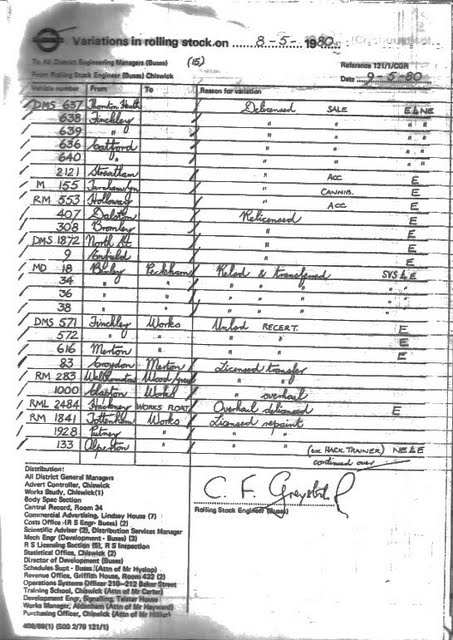 Variations in rolling stock on 8-5- 1980
To All District Engineering Managers (Buses) (15)
From Rolling Stock Engineer (Buses) Chiswick
Reference 121/1/CGR
Date 9-5-80
Vehicle number From To Reason for variation
DMS 637 Thornton Heath Delicensed SALE E & NE
638 Finchley " " " "
639 " " " " "
636 Catford " " " "
640 " " " " "
2121 Streatham " ACC E
M 155 Turnham Gn " CANNIB. E
RM 553 Holloway " ACC E
407 Dalston Relicensed E
308 Bromley " E
DMS 1872 North St " E
9 Enfield " E
MD 18 Bexley Peckham Relcd & transferred SVS & E
34 " " " " " "
36 " " " " " "
38 " " " " " "
DMS 571 Finchley Works Unlcd RECERT. E
572 " " " " E
616 Merton " " " E
83 Croydon Merton Licensed transfer
RM 283 Walthamstow Wood Green " "
1000 Clapton Works " overhaul
RML 2484 Hackney WORKS FLOAT Overhaul delicensed E
RM 1841 Tottenham Works Licensed repaint
1928 Putney " " "
133 Alperton " " " (ex HACK TRAINER) NE & E
continued over
C. F. Greybrook
Rolling Stock Engineer (Buses)
Distribution:
All District General Managers
Advert Controller, Chiswick
Works Study, Chiswick(1)
Body Spec Section
Central Record, Room 34
Commercial Advertising, Lindsey House (7)
Costs Office (R S Engr- Buses) (2)
Scientific Adviser (2), Distribution Services Manager
Mech Engr (Development - Buses) (3)
R S Licensing Section (5), R S Inspection
Statistical Office, Chiswick (2)
Director of Development (Buses)
Schedules Supt - Buses (Attn of Mr Hyslop)
Revenue Office, Griffith House, Room 432 (2)
Operations Systems Officer 210-212 Baker Street
Training School, Chiswick (Attn of Mr Carter)
Development Engr, Signalling, Telstar House
Works Manager, Aldenham (Attn of Mr Hayward)
Purchasing Officer, Chiswick (Attn of Mr Hillier)
406/89(1) (500 2/79 121/1)